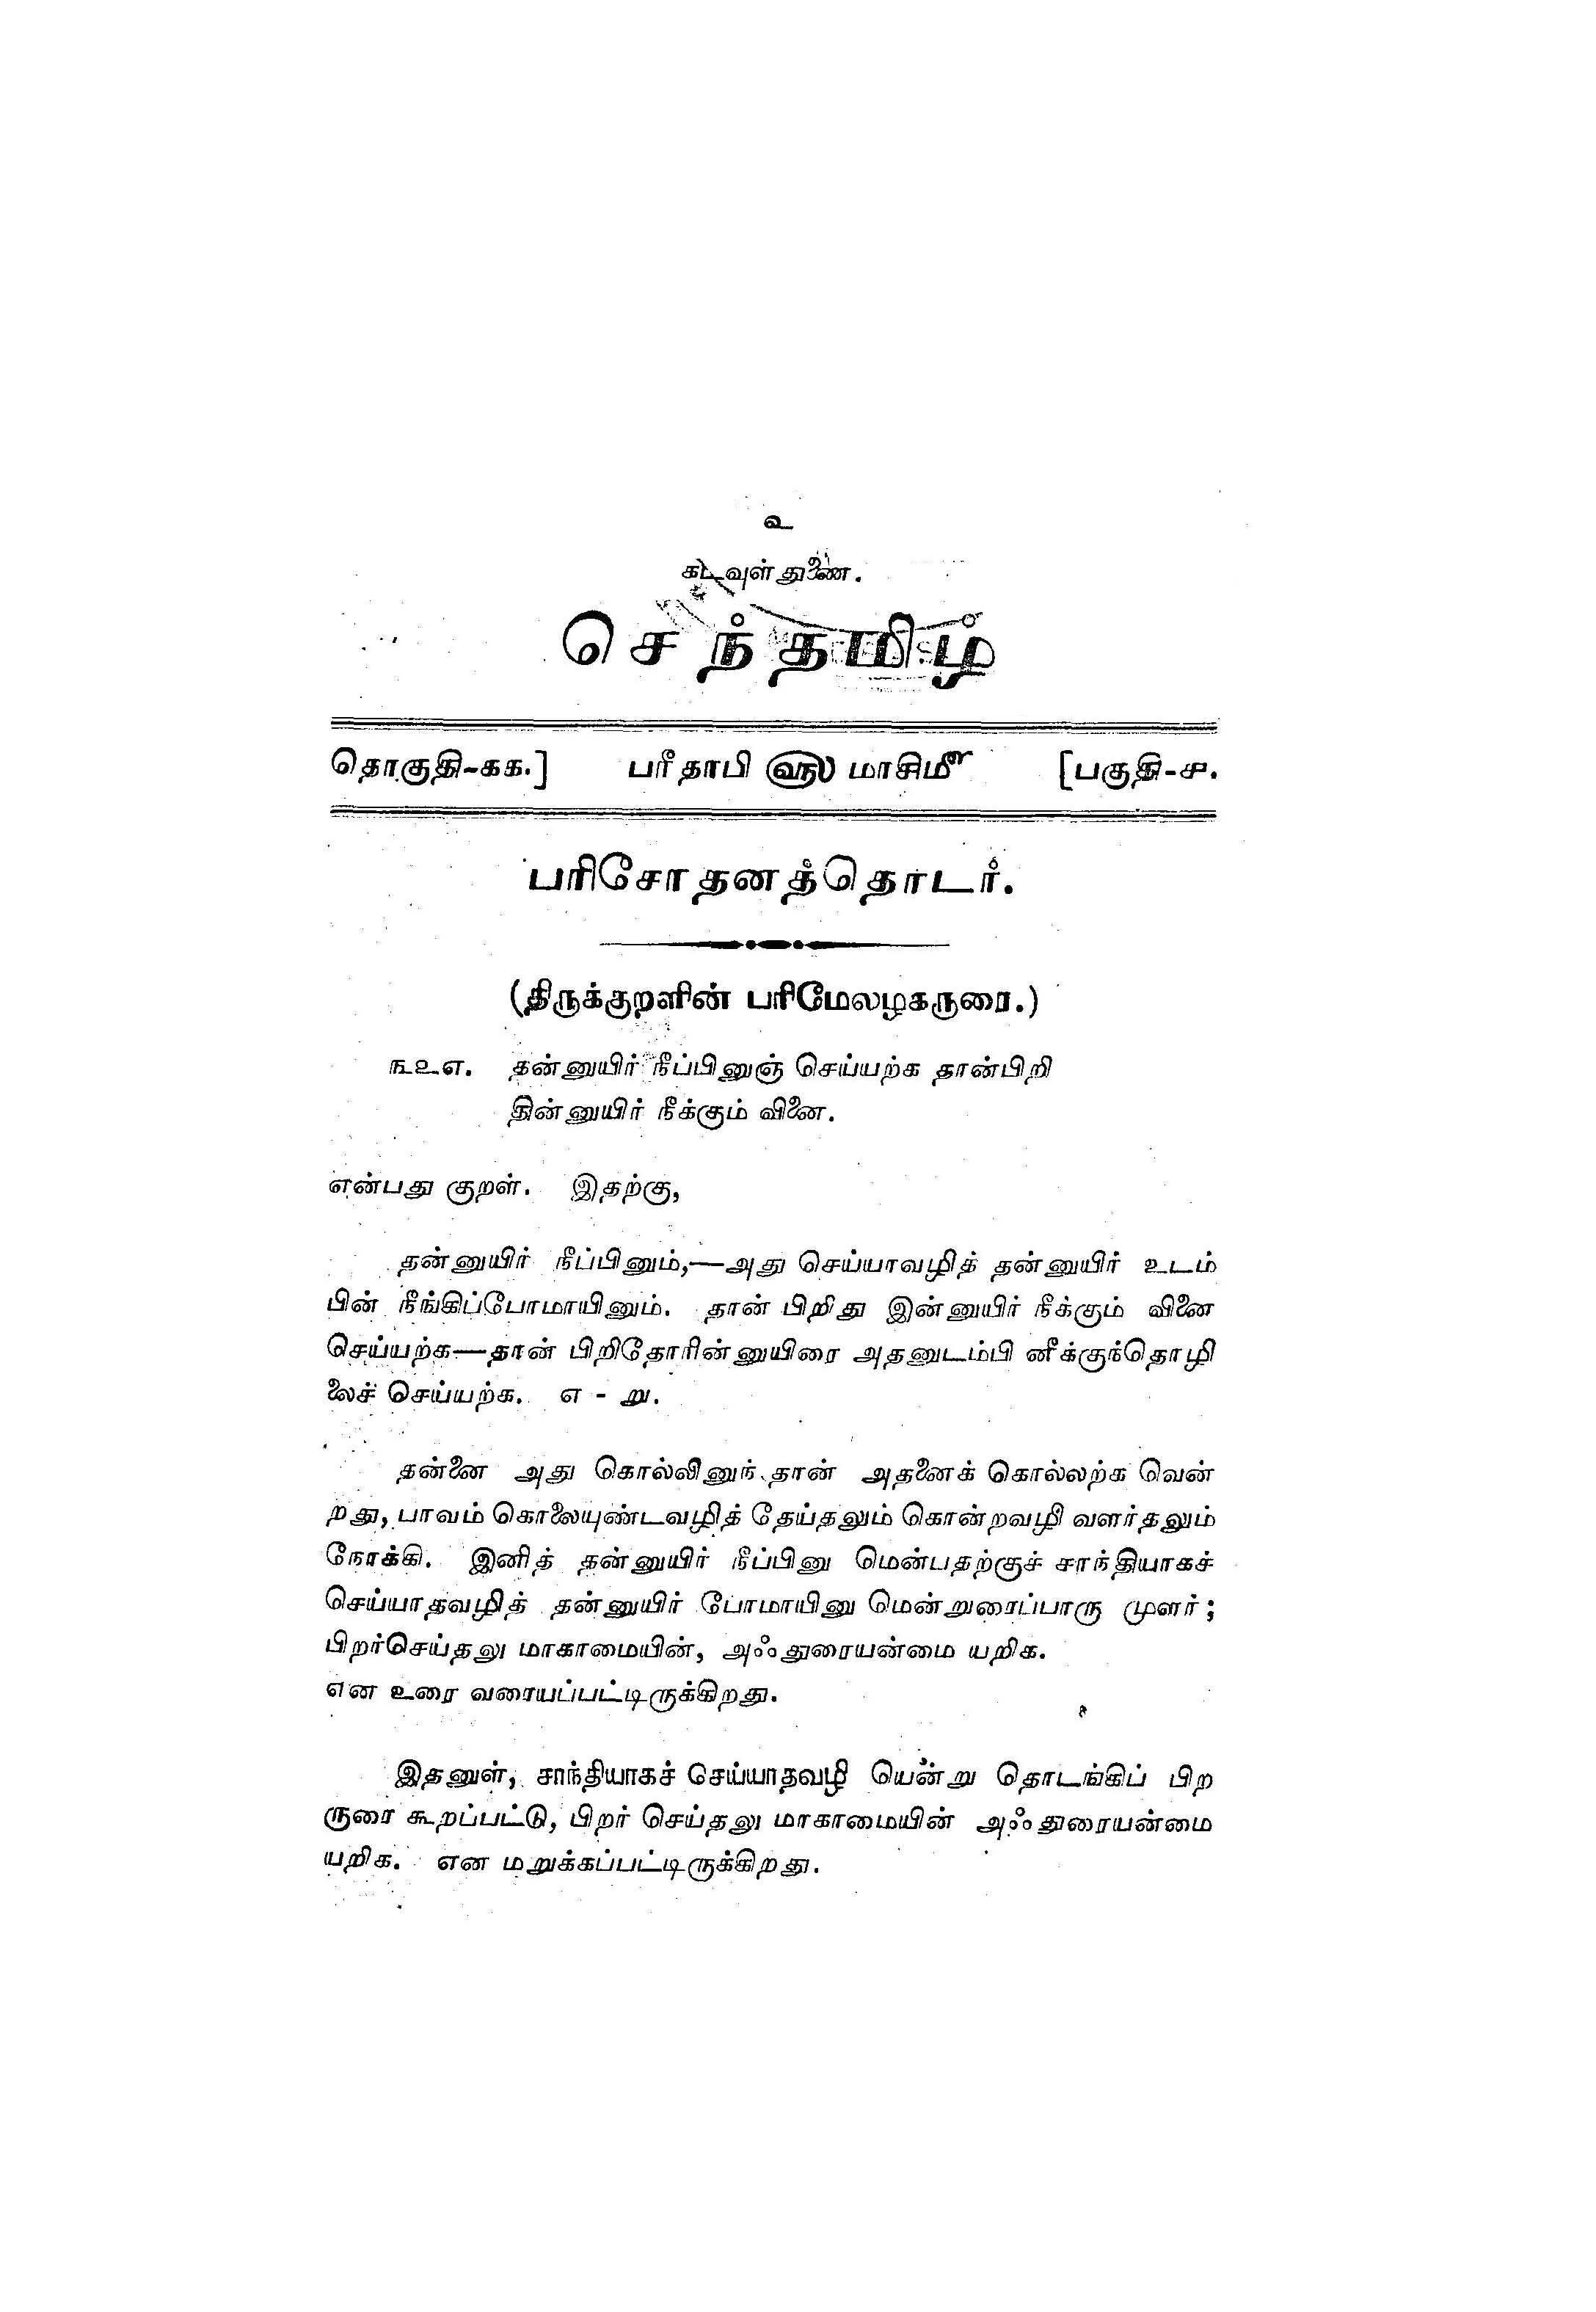 உ
கடவுள் துணை.
செந்தமிழ்
தொகுதி-கக.] பரீதாபி ௵ மாசிமீ [பகுதி-ச.
பரிசோதனத்தொடர்.
(திருக்குறளின் பரிமேலழகருரை.)
௩௨௭. தன்னுயிர் நீப்பினுஞ் செய்யற்க தான்பிறி
தின்னுயிர் நீக்கும் வினை.
என்பது குறள். இதற்கு,
தன்னுயிர் நீப்பினும்,—அது செய்யாவழித் தன்னுயிர் உடம்
பின் நீங்கிப்போமாயினும். தான் பிறிது இன்னுயிர் நீக்கும் வினை
செய்யற்க—தான் பிறிதோரின்னுயிரை அதனுடம்பி னீக்குந்தொழி
லைச் செய்யற்க. எ - று.
தன்னை அது கொல்லினுந் தான் அதனைக் கொல்லற்க வென்
றது, பாவம் கொலையுண்டவழித் தேய்தலும் கொன்றவழி வளர்தலும்
நோக்கி. இனித் தன்னுயிர் நீப்பினு மென்பதற்குச் சாந்தியாகச்
செய்யாதவழித் தன்னுயிர் போமாயினு மென்றுரைப்பாரு முளர்;
பிறர்செய்தலு மாகாமையின், அஃதுரையன்மை யறிக.
என உரை வரையப்பட்டிருக்கிறது.
இதனுள், சாந்தியாகச் செய்யாதவழி யென்று தொடங்கிப் பிற
ருரை கூறப்பட்டு, பிறர் செய்தலு மாகாமையின் அஃதுரையன்மை
யறிக. என மறுக்கப்பட்டிருக்கிறது.